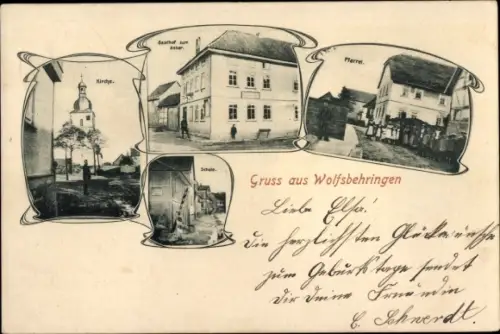 Kirche.
Gasthof zum
Anker.
Pfarrei.
Schule.
Gruss aus Wolfsbehringen
Liebe Elsa!
Die herzlichsten Glückwünsche
zum Geburtstage sendet
Dir deine Freundin
E. Schwerdt.